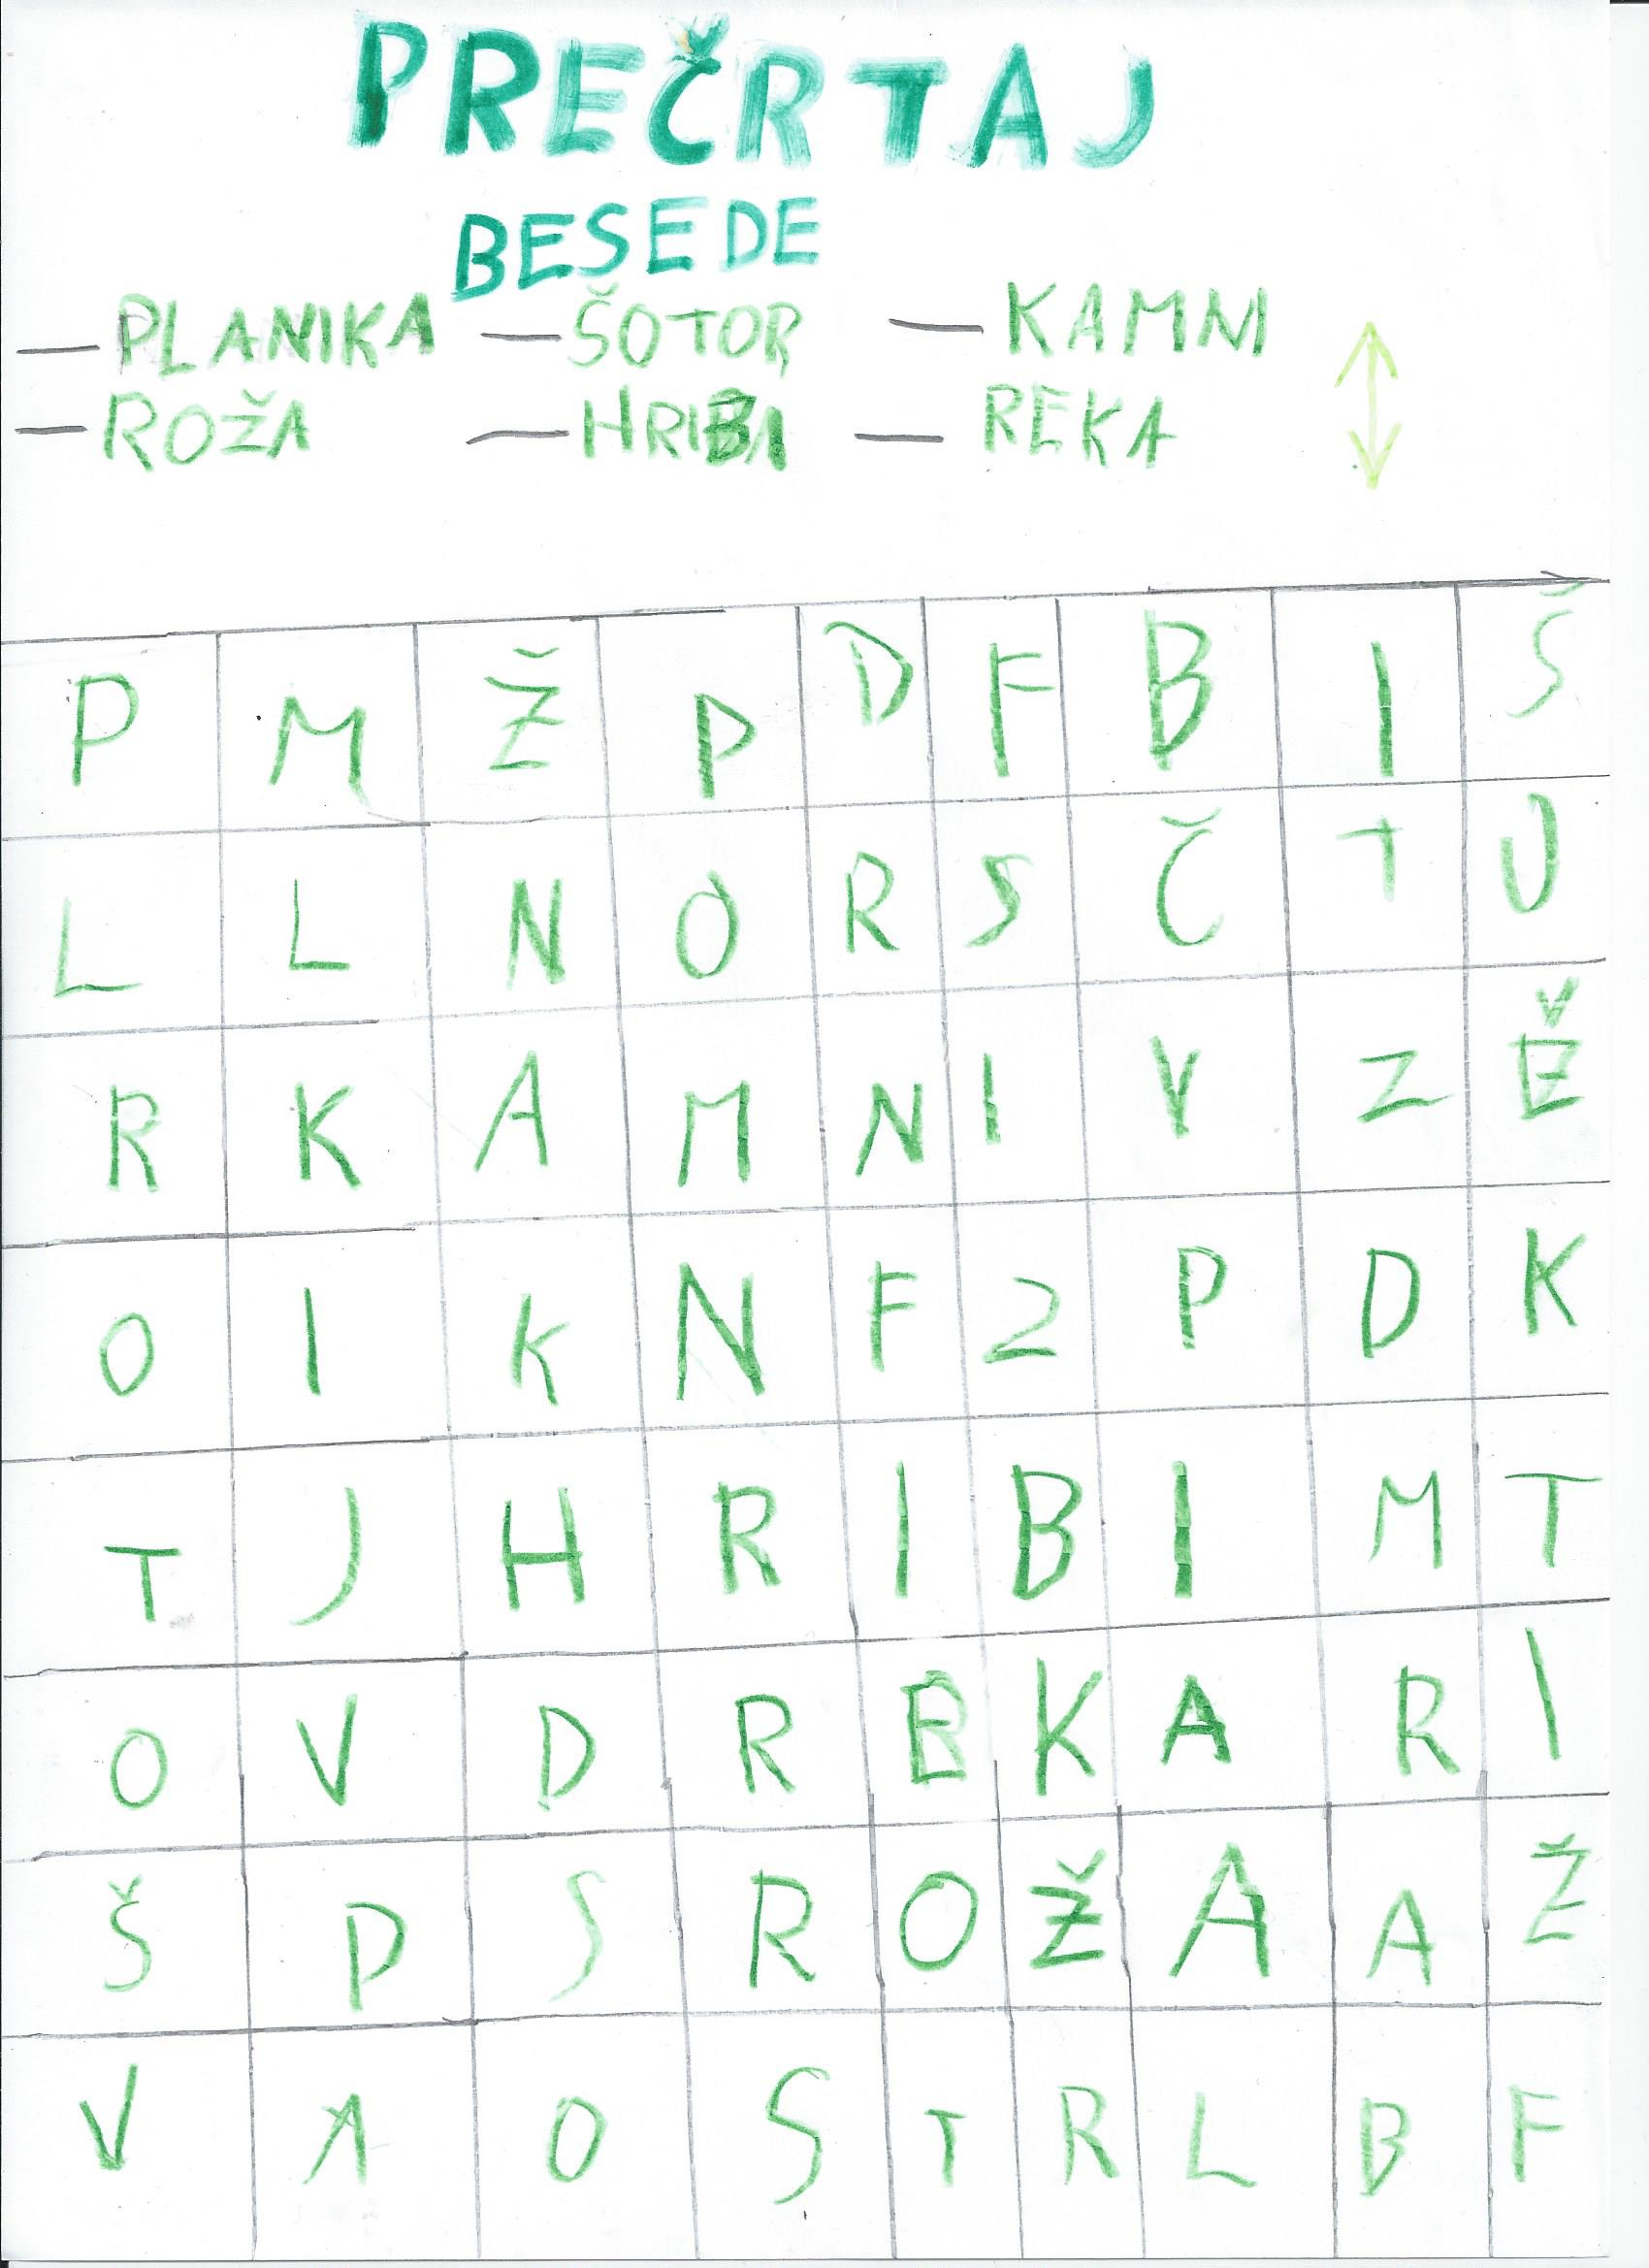 PREČRTAJ
BESEDE
— PLANIKA — ŠOTOR — KAMNI
— ROŽA — HRIBI — REKA
P M Ž P D F B I Š
L L N O R S Č T U
R K A M N I V Z Ž
O I K N F Z P D K
T J H R I B I M T
O V D R E K A R I
Š P S R O Ž A A Ž
V A O S T R L B F